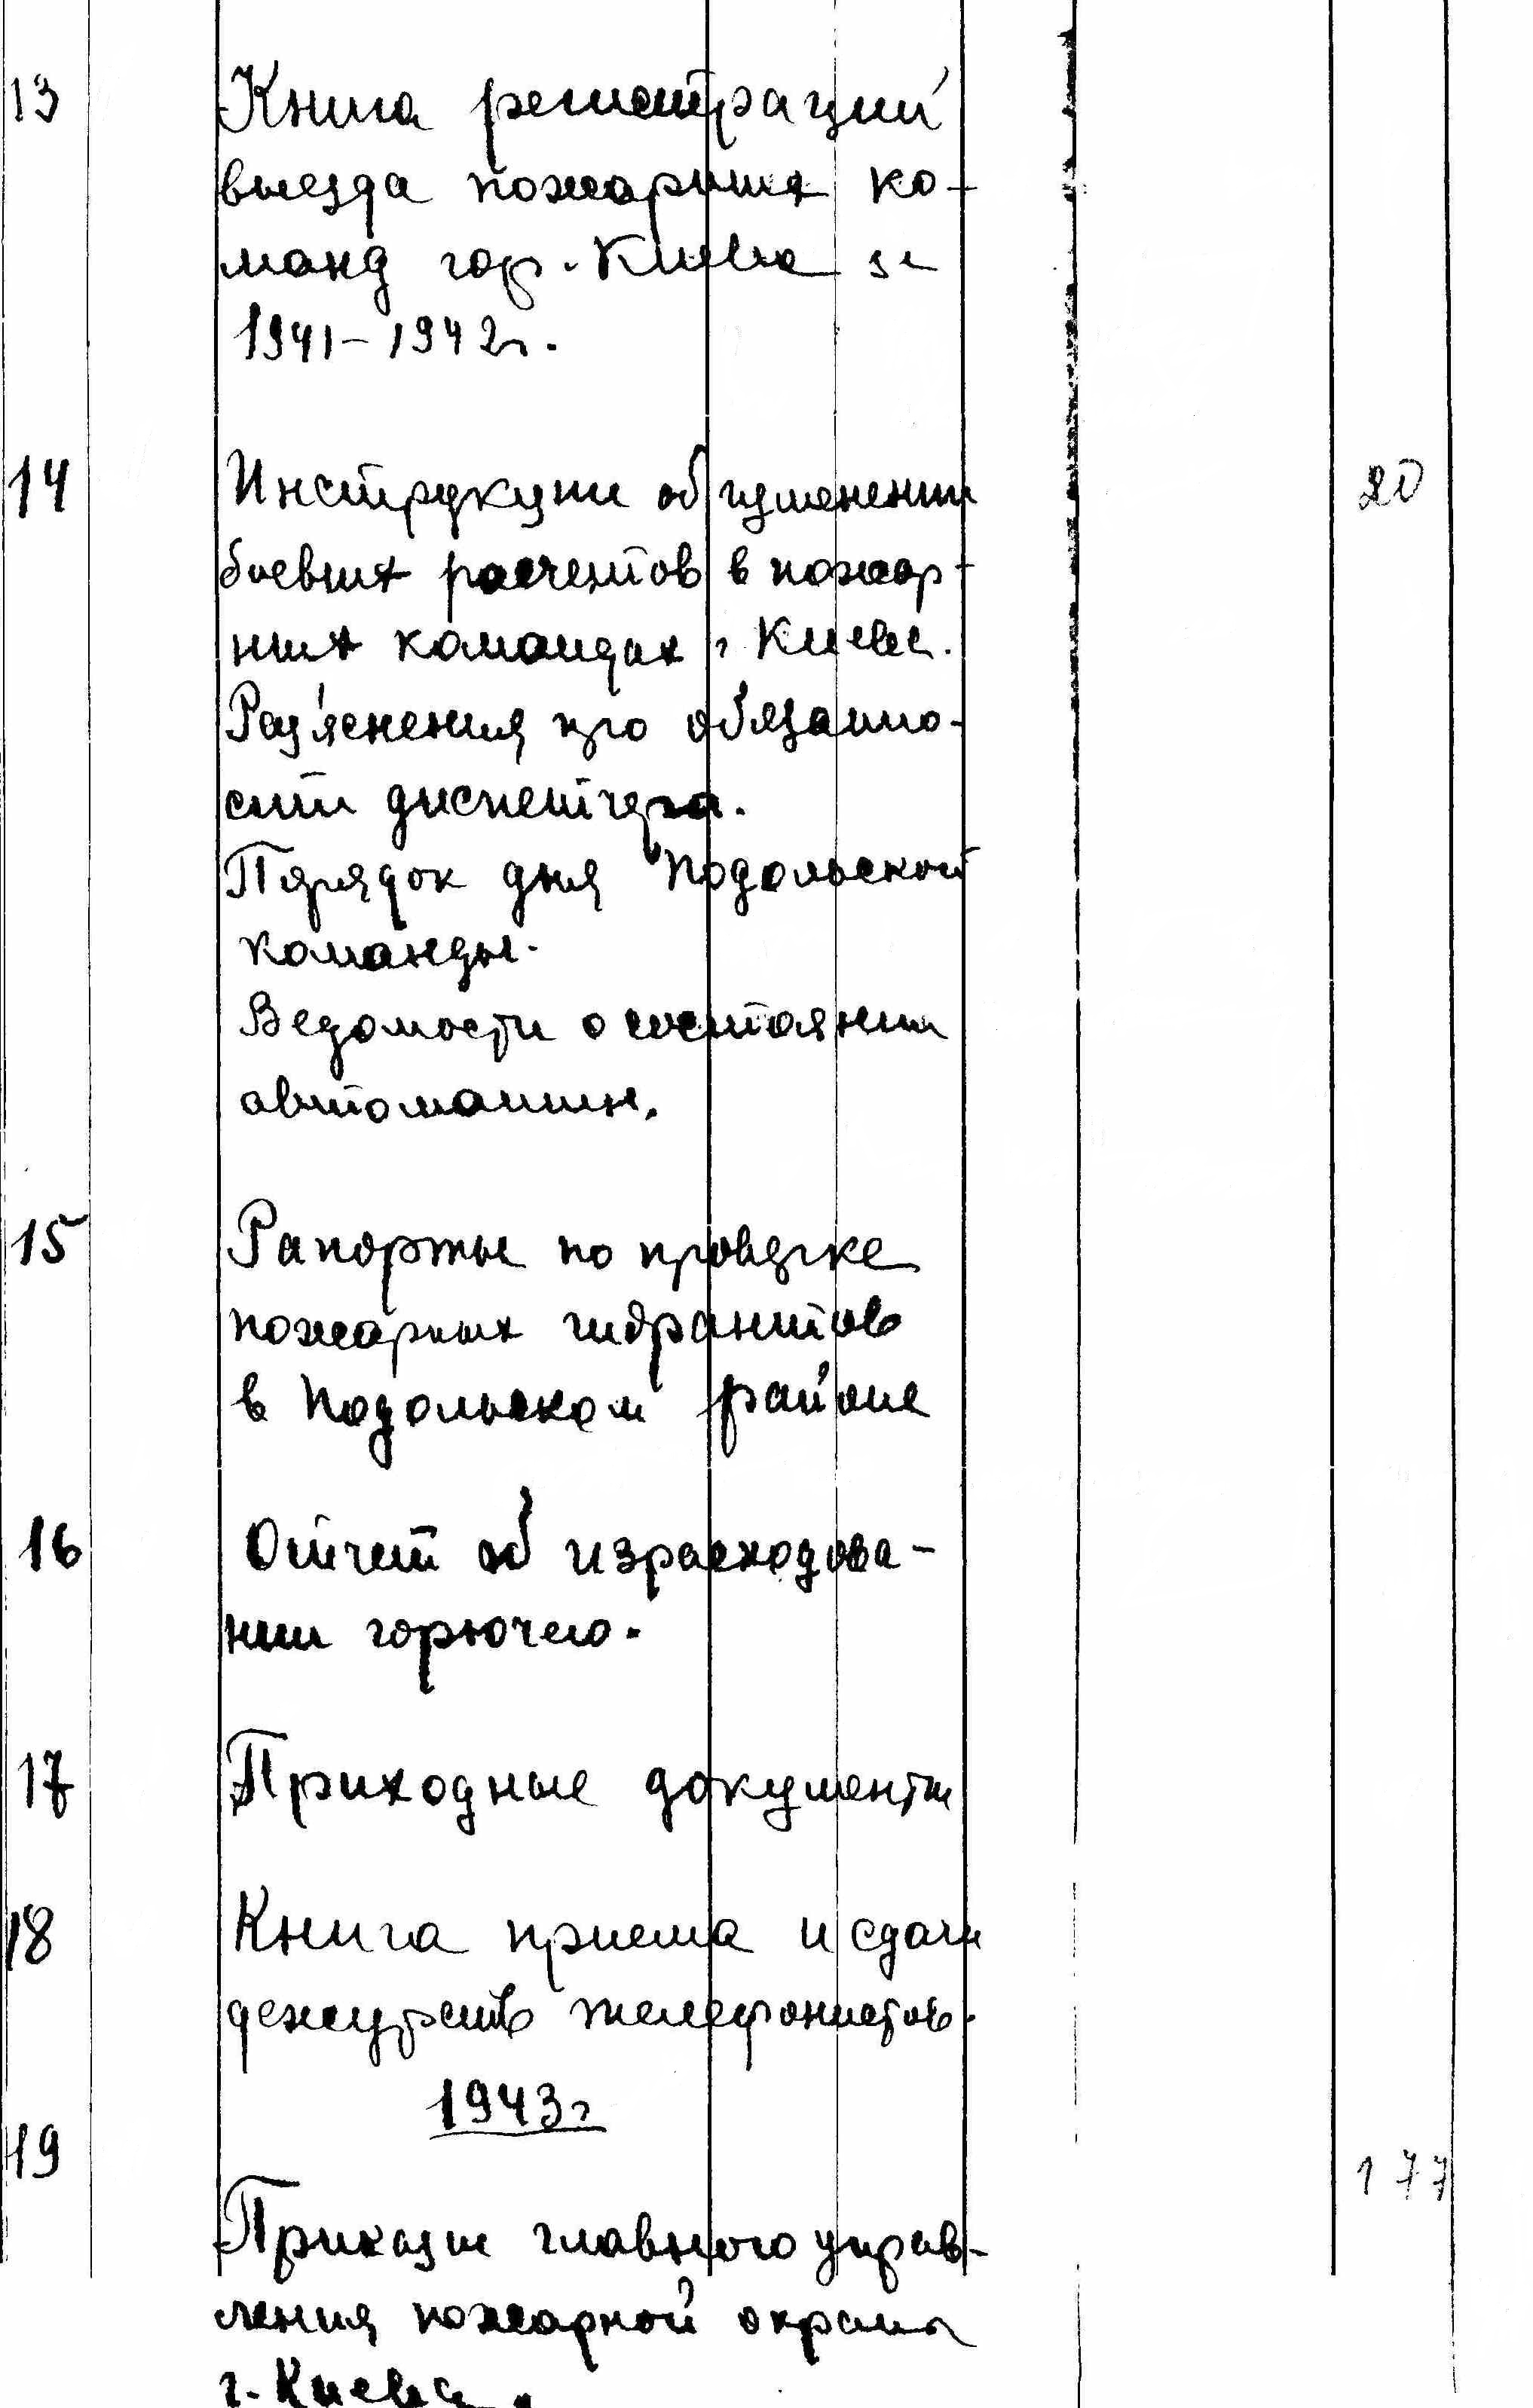 13 Книга регистраций
выезда пожарных ко-
манд гор. Киева за
1941-1942г.
14 Инструкции об изменении 20
боевых расчетов в пожар-
ных командах г. Киева.
Раз'яснения про обязанно-
сти диспетчера.
Порядок дня Подольской
команды.
Ведомости о состоянии
автомашин.
15 Рапорты по проверке
пожарных гидрантов
в Подольском районе
16 Отчет об израсходова-
нии горючего.
17 Приходные документы
18 Книга приема и сдачи
дежурств телефонистов.
1943г
19 177
Приказы главного управ-
ления пожарной охраны
г. Киева.